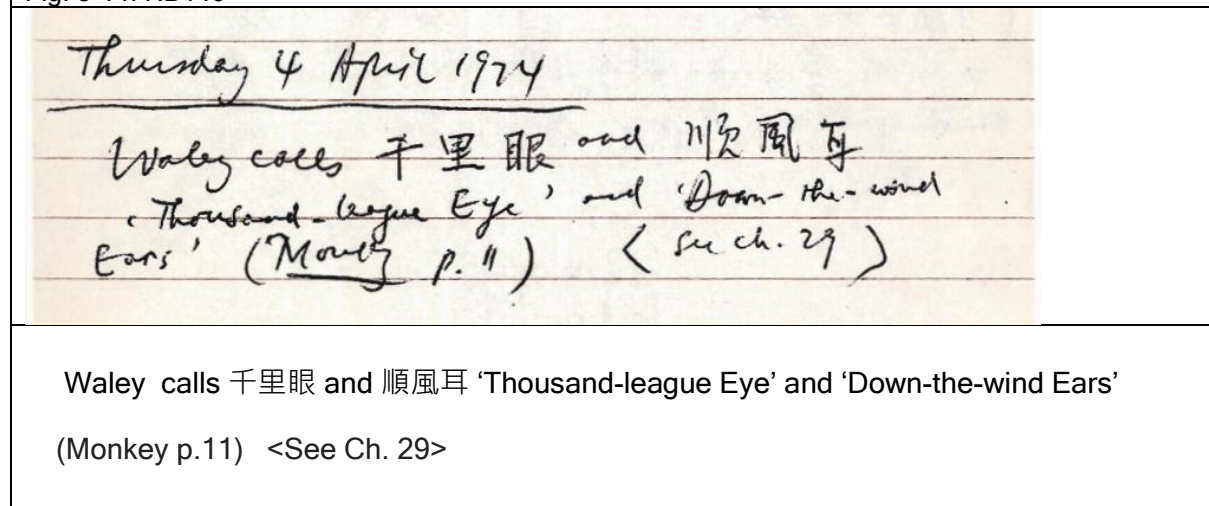 Thursday 4 April 1974
Waley calls 千里眼 and 順風耳
'Thousand-league Eye' and 'Down-the-wind
Ears' (Monkey p.11) <see ch. 29>
Waley calls 千里眼 and 順風耳 ‘Thousand-league Eye’ and ‘Down-the-wind Ears’
(Monkey p.11) <See Ch. 29>